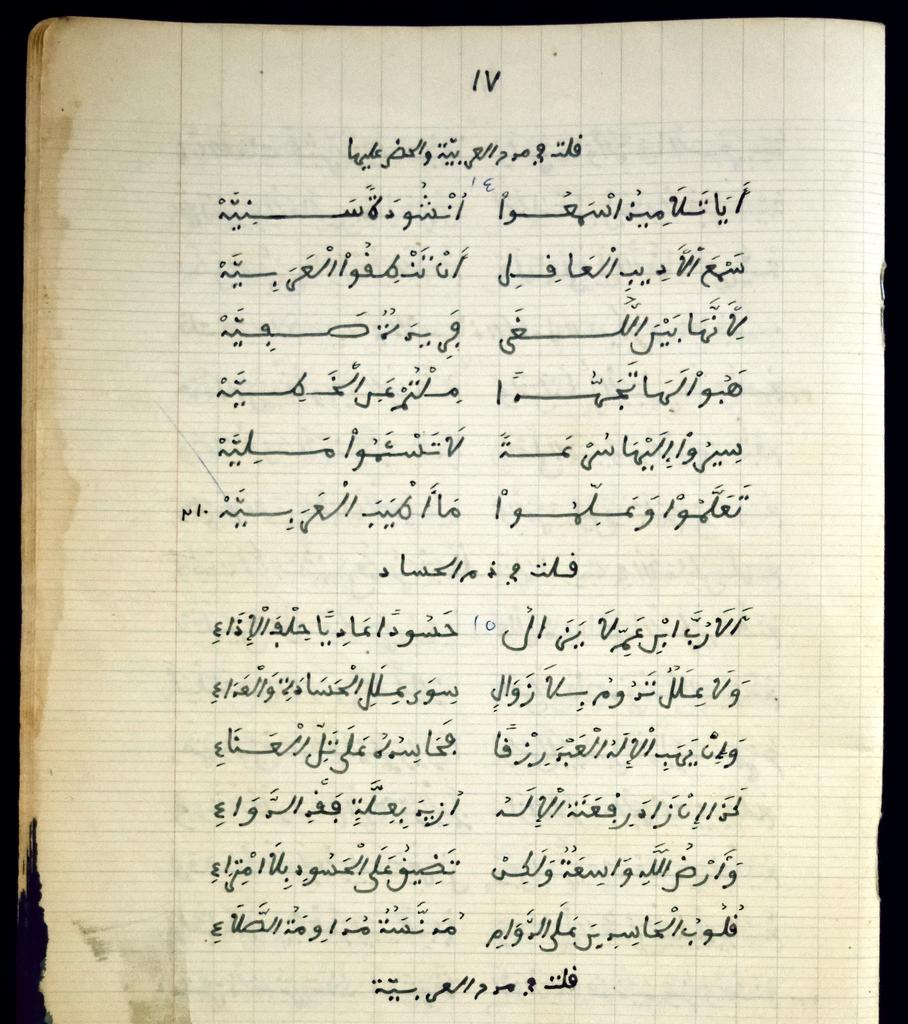 ١٧
قلت في مدح العربيّة والحض عليها
أَيَا تَلَامِيذُ اسْمَعُـوا ١٤ أُنْشُودَةً سَـنِيَّهْ
سَمْعَ الْأَدِيبِ الْعَاقِـلِ أَنْ تَتْـقِفُوا الْعَرَبِـيَّهْ
لِأَنَّهَا بَيْنَ اللُّـغَى
هَبُوا لَهَا تَجَهُّـدًا مِلْتُمْ عَنِ
سِيرُوا إِلَيْهَا سُرْعَـةً لَا تَسْئَمُوا مَـلِيَّهْ
تَعَلَّمُوا وَعَلِّمُـوا مَا أَطْيَبَ الْعَرَبِـيَّهْ
قلت في ذم الحساد
أَلَا رُبَّ ابْنِ عَمٍّ لَا يَنِي الـ ١٥ حَسُودًا عَادِيًا حِلْفَ الْإِذَاءِ
وَلَا عِلَلٌ تَدُومُ بِـلَا زَوَالٍ سِوَى عِلَلِ الْحَسَادَةِ وَالْعَدَاءِ
وَإِنْ يَهَبِ الْإِلَهُ الْعَبْدَ رِزْقًا فَحَاسِدُهُ عَلَى الْعَنَاءِ
إِنْ زَادَ رِفْعَتَهُ الْإِلَهُ بِعِلَّةٍ فَقْدِ الدَّوَاءِ
وَأَرْضُ اللَّهِ وَاسِعَةٌ وَلَكِنْ تَضِيقُ عَلَى الْحَسُودِ بِلَا امْتِرَاءِ
قُلُوبُ الْحَاسِدِينَ عَلَى الدَّوَامِ مُدَنَّسَةٌ مُدَاوِمَةُ
قلت في مدح العربيّة